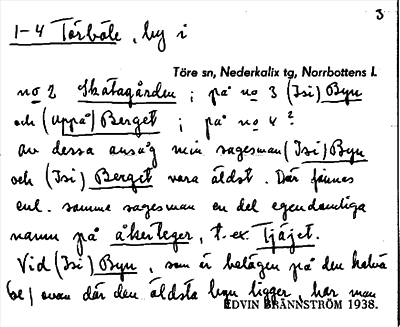 3
1-4 Törböle, by i
Töre sn, Nederkalix tg, Norrbottens l.
no 2 Skatagården; på no 3 (Isi) Byn
och (uppå) Berget; på no 4?
av dessa ansåg min sagesman (Isi) Byn
och (Isi) Berget vara äldst. Där finnes
enl. samme sagesman en del egendomliga
namn på åkerteger, t.ex. Tjäjet.
Vid (Isi) Byn, som är belägen på den halvö
(se) ovan där den äldsta byn ligger, har man
EDVIN BRÄNNSTRÖM 1938.